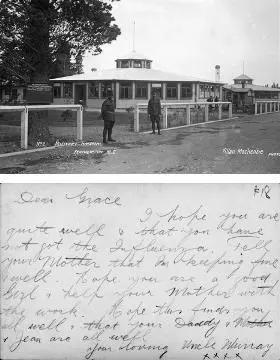 Nº2 Military Hospital
Featherston N.Z.
Allan MacKenzie
PHOTO
Dear Grace
I hope you are
quite well & that you have
not got the Influenza. Tell
your Mother that I'm keeping fine
& well. Hope you are a good
Girl & help your Mother with
the work. Hope this finds you
all well & that your Daddy & Mother
& Jean are all well
your loving Uncle Murray
x x x x